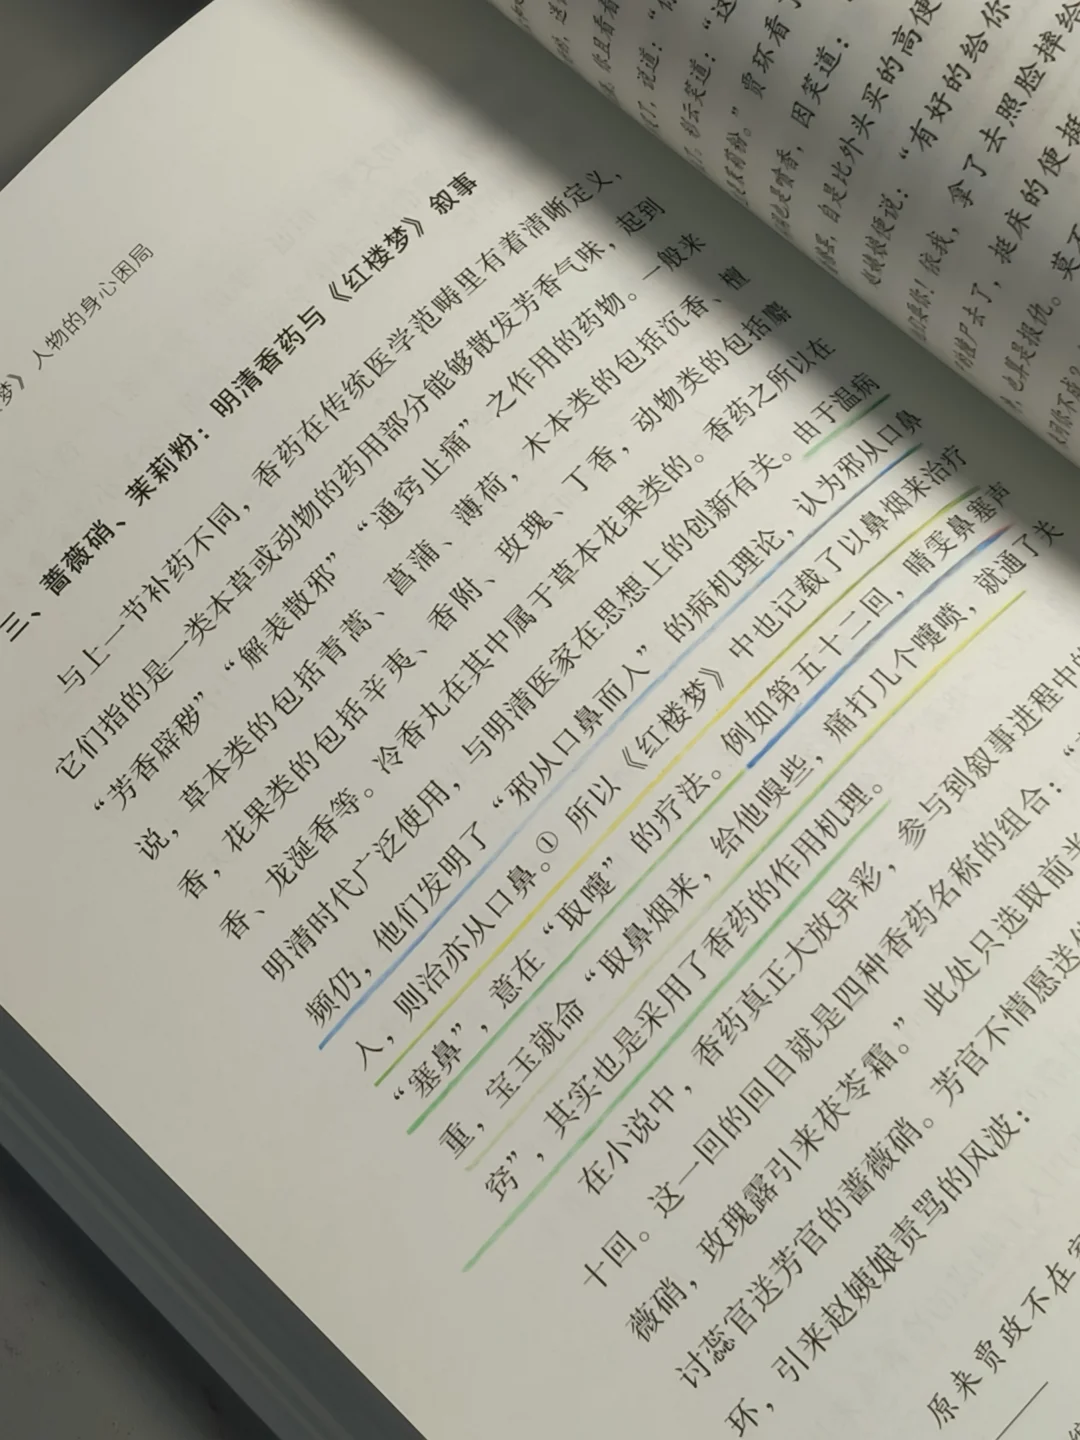 梦》人物的身心困局
三、蔷薇硝、茉莉粉：明清香药与《红楼梦》叙事
与上一节补药不同，香药在传统医学范畴里有着清晰定义，
它们指的是一类本草或动物的药用部分能够散发芳香气味，起到
“芳香辟秽”“解表散邪”“通窍止痛”之作用的药物。一般来
说，草本类的包括青蒿、菖蒲、薄荷，木本类的包括沉香、檀
香，花果类的包括辛夷、香附、玫瑰、丁香，动物类的包括麝
香、龙涎香等。冷香丸在其中属于草本花果类的。香药之所以在
明清时代广泛使用，与明清医家在思想上的创新有关。由于温病
频仍，他们发明了“邪从口鼻而人”的病机理论，认为邪从口鼻
人，则治亦从口鼻。①所以《红楼梦》中也记载了以鼻烟来治疗
“塞鼻”，意在“取嚏”的疗法。例如第五十二回，晴雯鼻塞声
重，宝玉就命“取鼻烟来，给他嗅些，痛打几个嚏喷，就通了关
窍”，其实也是采用了香药的作用机理。
在小说中，香药真正大放异彩，参与到叙事进程中的
十回。这一回的回目就是四种香药名称的组合：“
薇硝，玫瑰露引来茯苓霜。”此处只选取前半
讨蕊官送芳官的蔷薇硝。芳官不情愿送
环，引来赵姨娘责骂的风波：
原来贾政不在
你且看看
了，说道：“
彩云笑道：“这
”贾环看了
香，因笑道：
自是比外头买的高便
赵姨娘便说：“有好的给你
依我，拿了去照脸摔给
撞尸去了，挺床的便挺
也算是报仇。莫不